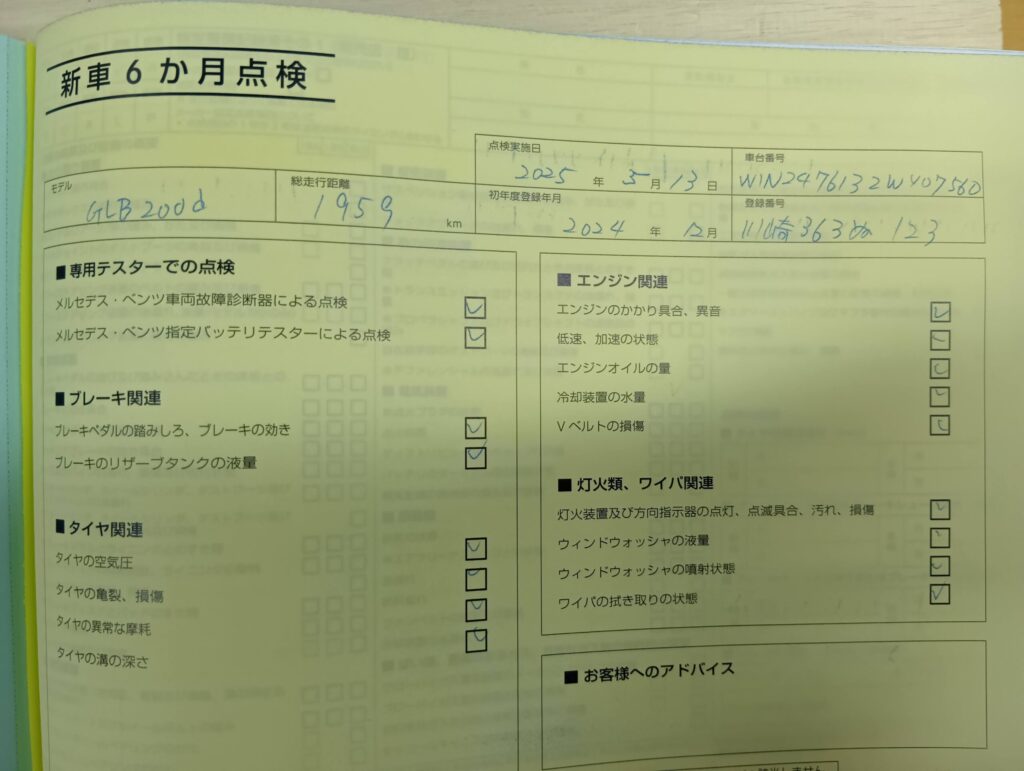 新車6か月点検
点検実施日
2025 年 5月 13日
車台番号
W1N2476132W407560
モデル
GLB200d
総走行距離
1959 km
初年度登録年月
2024 年 12月
登録番号
川崎363ぬ 123
■専用テスターでの点検
メルセデス・ベンツ車両故障診断器による点検
メルセデス・ベンツ指定バッテリテスターによる点検
■ブレーキ関連
ブレーキペダルの踏みしろ、ブレーキの効き
ブレーキのリザーブタンクの液量
■タイヤ関連
タイヤの空気圧
タイヤの亀裂、損傷
タイヤの異常な摩耗
タイヤの溝の深さ
■エンジン関連
エンジンのかかり具合、異音
低速、加速の状態
エンジンオイルの量
冷却装置の水量
Vベルトの損傷
■灯火類、ワイパ関連
灯火装置及び方向指示器の点灯、点滅具合、汚れ、損傷
ウィンドウォッシャの液量
ウィンドウォッシャの噴射状態
ワイパの拭き取りの状態
■お客様へのアドバイス